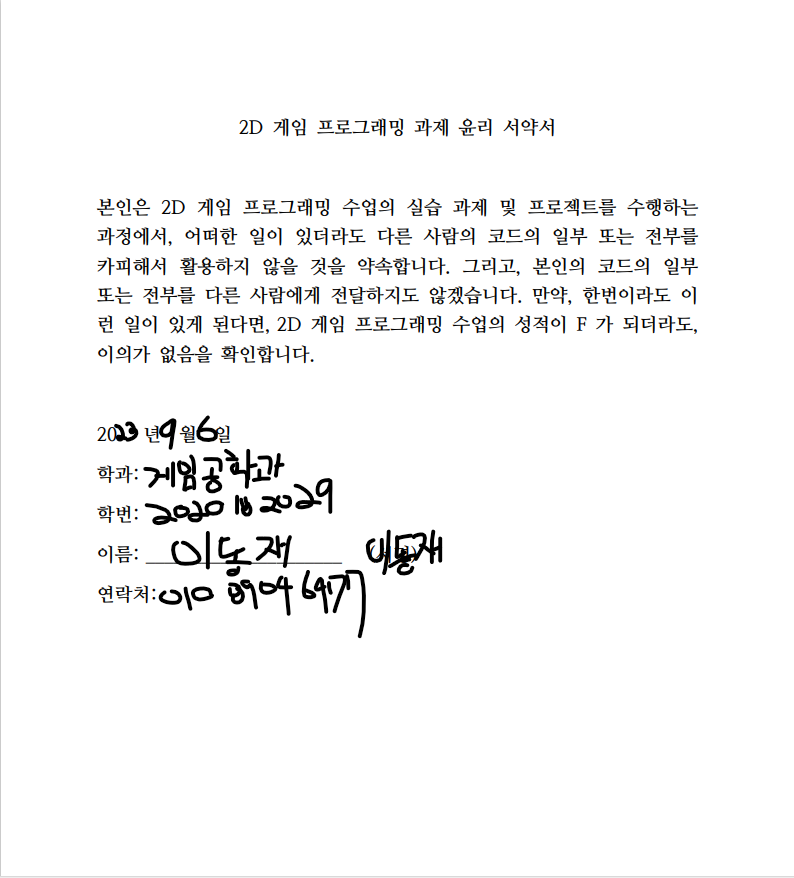 2D 게임 프로그래밍 과제 윤리 서약서
본인은 2D 게임 프로그래밍 수업의 실습 과제 및 프로젝트를 수행하는
과정에서, 어떠한 일이 있더라도 다른 사람의 코드의 일부 또는 전부를
카피해서 활용하지 않을 것을 약속합니다. 그리고, 본인의 코드의 일부
또는 전부를 다른 사람에게 전달하지도 않겠습니다. 만약, 한번이라도 이
런 일이 있게 된다면, 2D 게임 프로그래밍 수업의 성적이 F 가 되더라도,
이의가 없음을 확인합니다.
2023 년 9 월 6 일
학과: 게임공학과
학번: 2029
이름: 이동재 이동재
연락처: 010